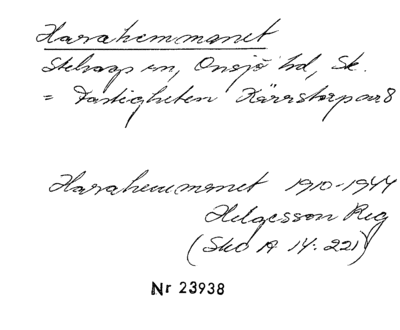 Harahemmanet
Stehags sn, Onsjö hd, Sk.
= Fastigheten Kärrstorp nr 8
Harahemmanet 1910-1944
Helgesson Reg
(Sko A 14:221)
Nr 23938